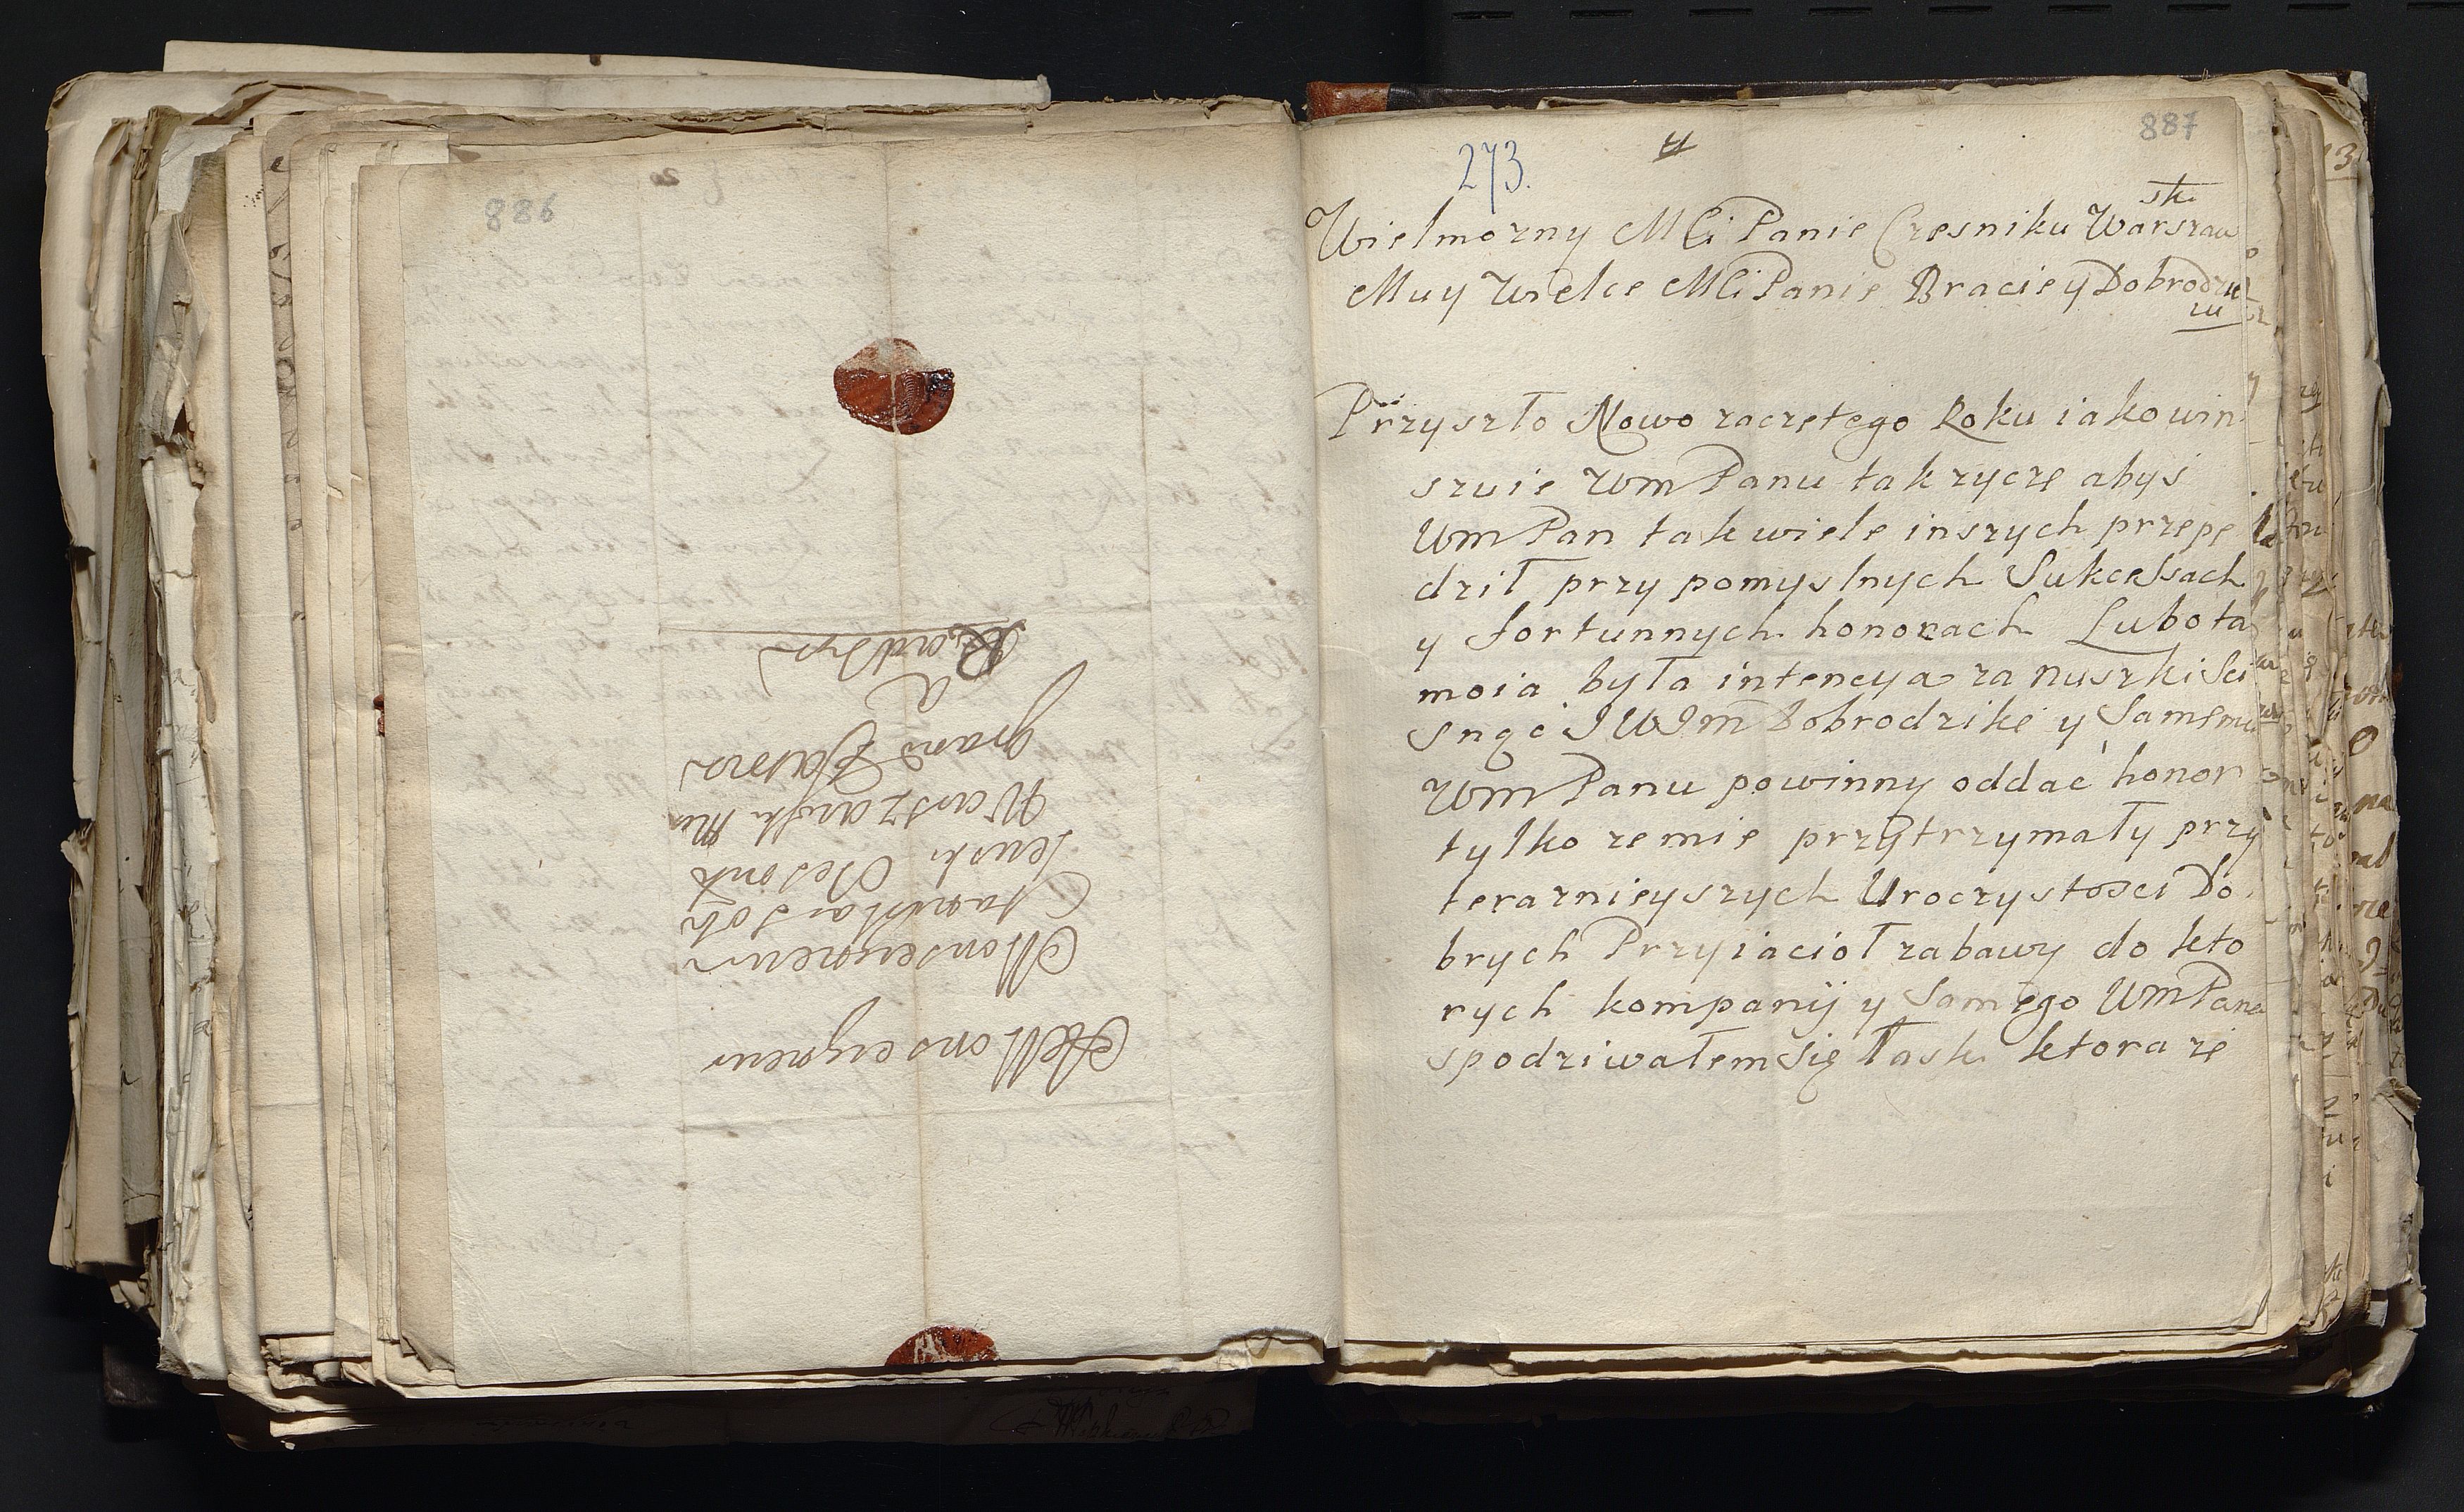 886
A Monseigneur
Monseigneur
Stanislas Sob
iewski Czesnik
Warszawski Mon
grand Patron
a
887
273.
Wielmozny MCi Panie Czesniku Warszaw
ski
Muy Wielce MCi Panie Bracie y Dobrodzie
iu
Przyszło Nowo zaczętego Roku iako win
szuie WmPanu tak zyczę abyś
WmPan tak wiele inszych przepę
dził przy pomyslnych Sukcessach
y fortunnych honorach Lubo ta
moia była intencya za nuszki Sci
snąć JWJm Dobrodzike y Samemu
WmPanu powinny oddać honor
tylko ze mie przytrzymały przy
teraznieyszych Uroczystosci Do
brych Przyiacioł zabawy do kto
rych kompanij y Samego WmPana
spodziwałem się łask ktora ze